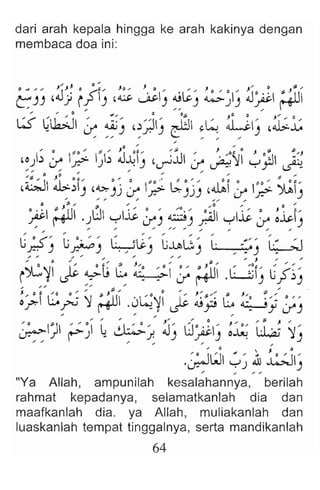 dari arah kepala hingga ke arah kakinya dengan
membaca doa ini:
اَللّٰهُمَّ اغْفِرْلَهُ وَارْحَمْهُ وَعَافِهِ وَاعْفُ عَنْهُ، وَأَكْرِمْ نُزُلَهُ، وَوَسِّعْ
مَدْخَلَهُ، وَاغْسِلْهُ بِمَاءِ الثَّلْجِ وَالْبَرَدِ، وَنَقِّهِ مِنَ الْخَطَايَا كَمَا
يُنَقَّى الثَّوْبُ الْأَبْيَضُ مِنَ الدَّنَسِ، وَأَبْدِلْهُ دَارًا خَيْرًا مِنْ دَارِهِ،
وَأَهْلًا خَيْرًا مِنْ أَهْلِهِ، وَزَوْجًا خَيْرًا مِنْ زَوْجِهِ، وَأَدْخِلْهُ الْجَنَّةَ،
وَأَعِذْهُ مِنْ عَذَابِ الْقَبْرِ وَفِتْنَتِهِ وَمِنْ عَذَابِ النَّارِ. اَللّٰهُمَّ اغْفِرْ
لِحَيِّنَا وَمَيِّتِنَا وَشَاهِدِنَا وَغَائِبِنَا وَصَغِيْرِنَا وَكَبِيْرِنَا
وَذَكَرِنَا وَأُنْثَانَا. اَللّٰهُمَّ مَنْ أَحْيَيْتَهُ مِنَّا فَأَحْيِهِ عَلَى الْإِسْلَامِ
وَمَنْ تَوَفَّيْتَهُ مِنَّا فَتَوَفَّهُ عَلَى الْإِيْمَانِ. اَللّٰهُمَّ لَا تَحْرِمْنَا أَجْرَهُ
وَلَا تُضِلَّنَا بَعْدَهُ وَاغْفِرْلَنَا وَلَهُ بِرَحْمَتِكَ يَا أَرْحَمَ الرَّاحِمِيْنَ
وَالْحَمْدُ لِلّٰهِ رَبِّ الْعَالَمِيْنَ.
"Ya Allah, ampunilah kesalahannya, berilah
rahmat kepadanya, selamatkanlah dia dan
maafkanlah dia. ya Allah, muliakanlah dan
luaskanlah tempat tinggalnya, serta mandikanlah
64